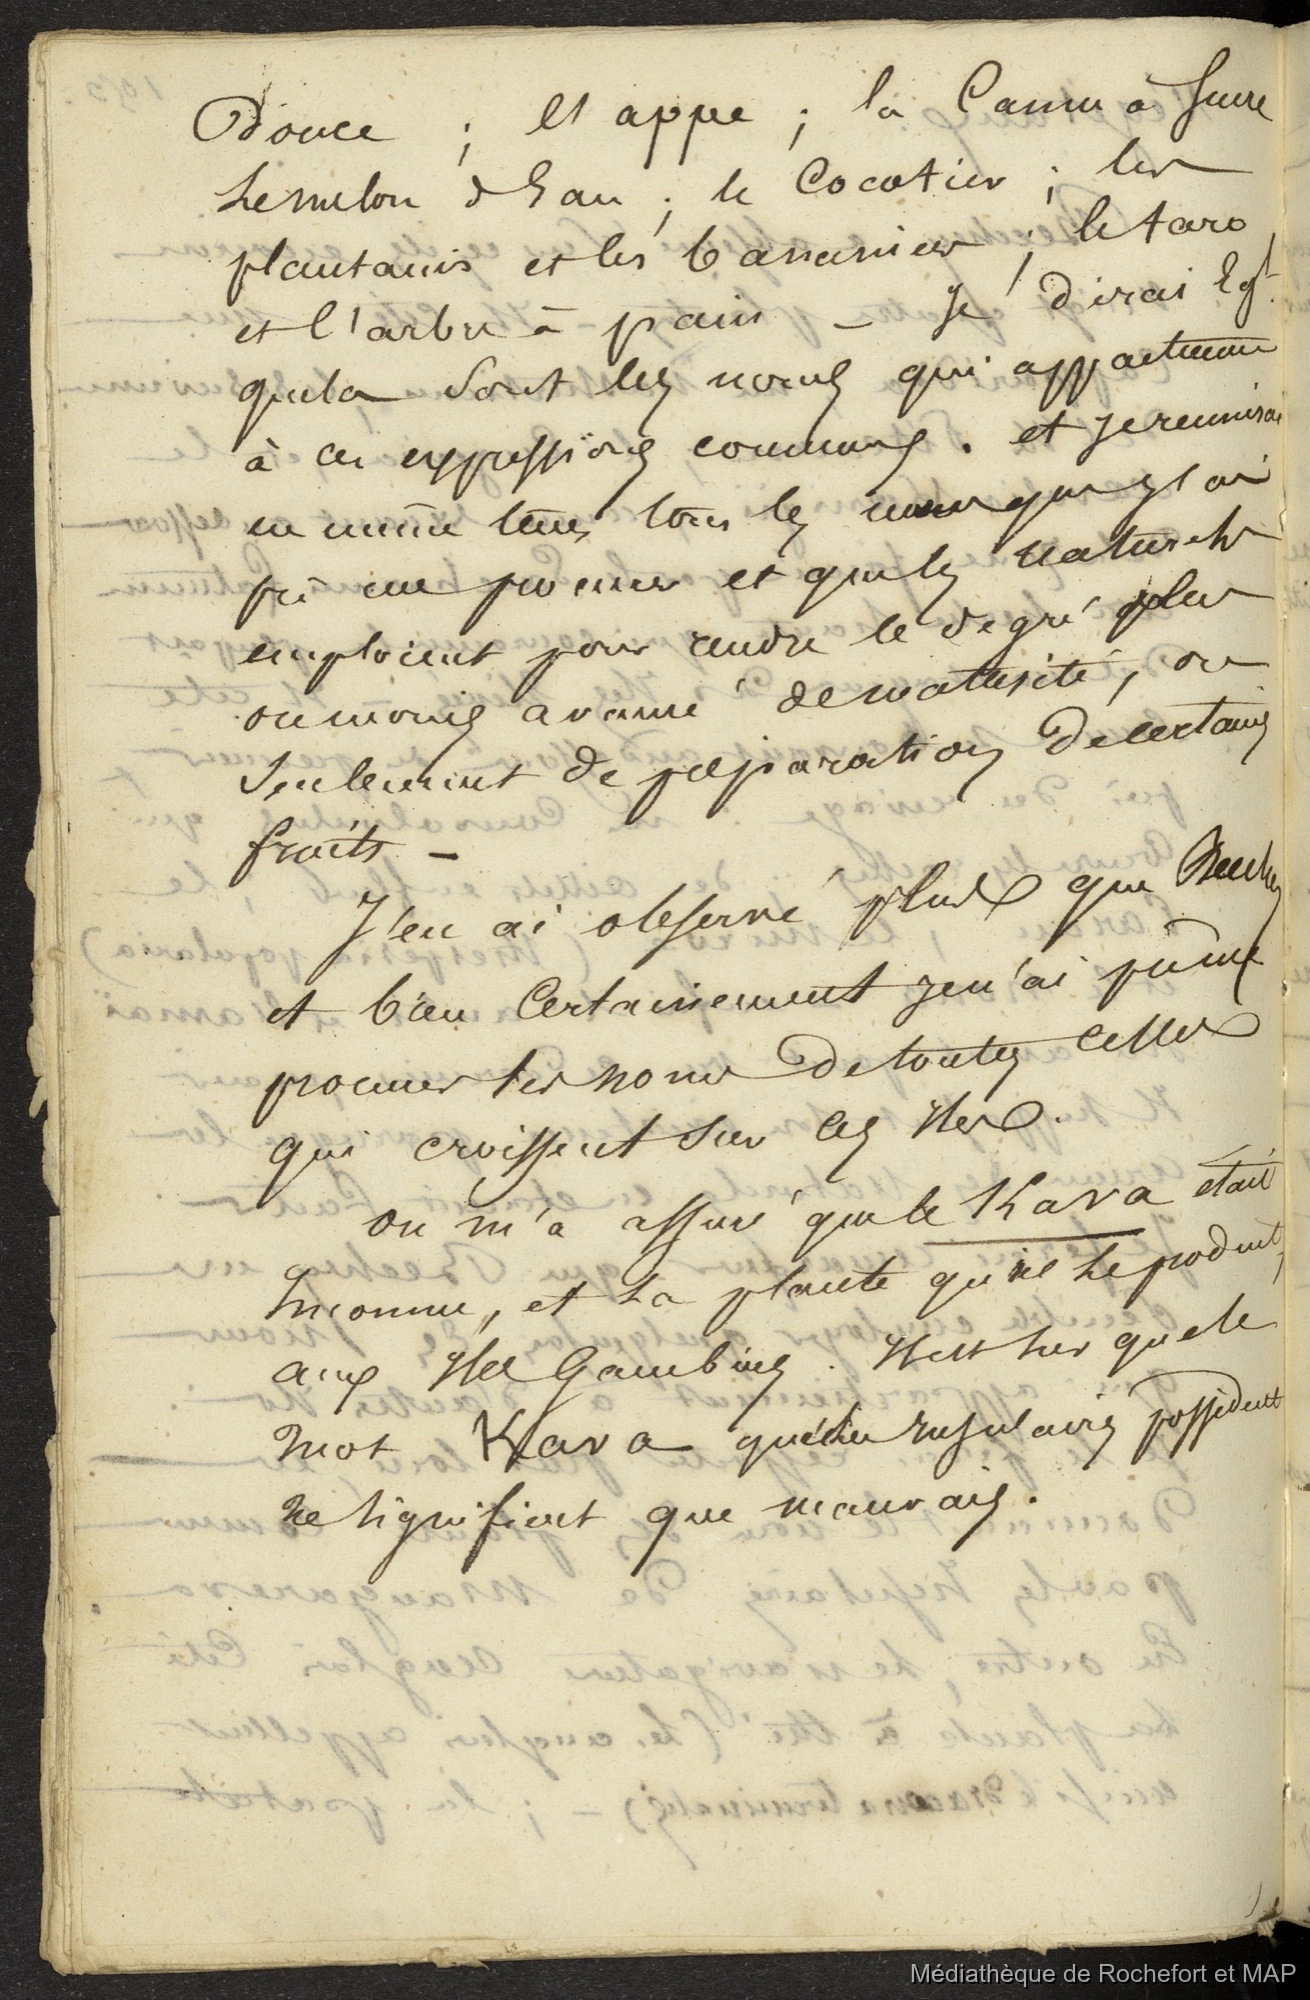 Douce ; et appe ; la Canne a Sucre
Le melon d'Eau ; le Cocotier ; les
plantanis et les bananier ; le taro
et l'arbre à pain – Je dirai Egt
quels sont les noms qui appartiennent
à ces expressions communes. et je reunirai
en même tems tous les noms que j'ai
pû me procurer et que les naturels
emploient pour rendre le degré plus
ou moins avancé de maturité, ou
seulement de préparation de certains
fruits –
J'en ai observé plus que Beechey
et bien Certainement je n'ai pû me
procurer les noms de toutes celles
qui croissent sur ces Iles.
on m'a assuré que le Kava était
Inconnu, et la plante qui le produit,
aux Iles Gambiers. Il est sur que le
mot Kava que les Insulaires possèdent
ne signifient que mauvais.
Médiathèque de Rochefort et MAP